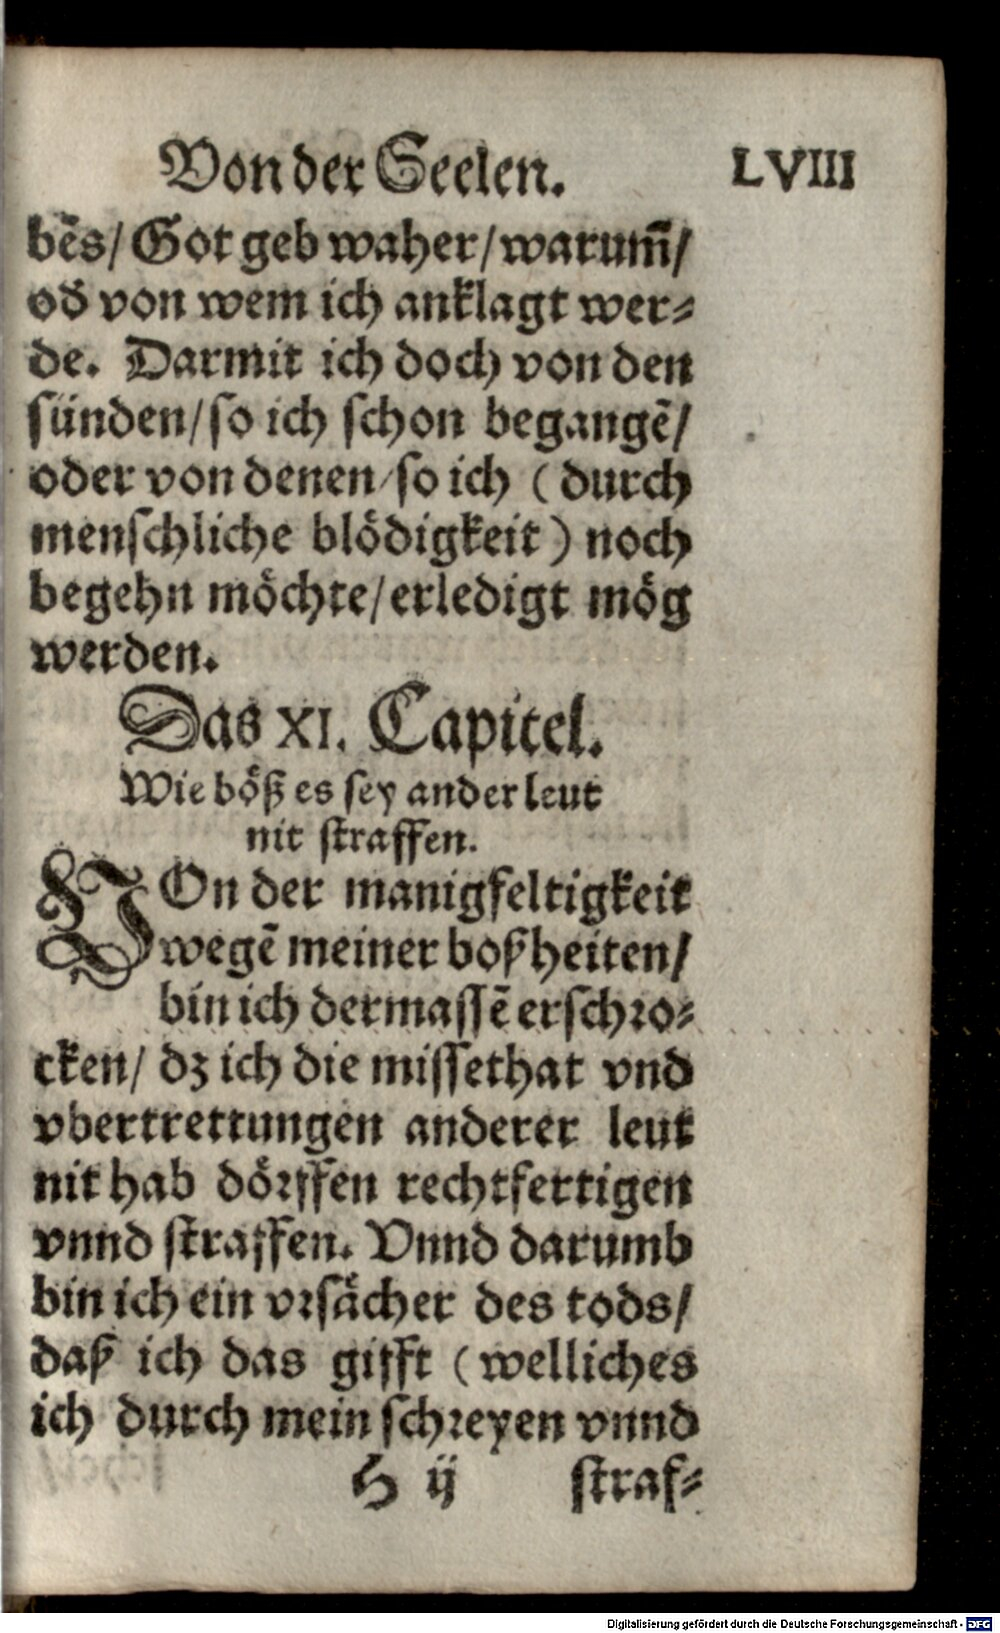 Von der Seelen. LVIII
bēs/ Got geb waher/warum̃/
od̕ von wem ich anklagt wer⸗
de. Darmit ich doch von den
sünden/so ich schon begangē/
oder von denen/so ich (durch
menschliche blödigkeit) noch
begehn möchte/erledigt mög
werden.
Das XI. Capitel.
Wie böß es sey ander leut
nit straffen.
VOn der manigfeltigkeit
wegē meiner boßheiten/
bin ich dermassē erschro⸗
cken/ dz ich die missethat vnd
vbertrettungen anderer leut
nit hab dörffen rechtfertigen
vnnd straffen. Vnnd darumb
bin ich ein vrsächer des tods/
daß ich das gifft (welliches
ich durch mein schreyen vnnd
H ij straf⸗
Digitalisierung gefördert durch die Deutsche Forschungsgemeinschaft - DFG